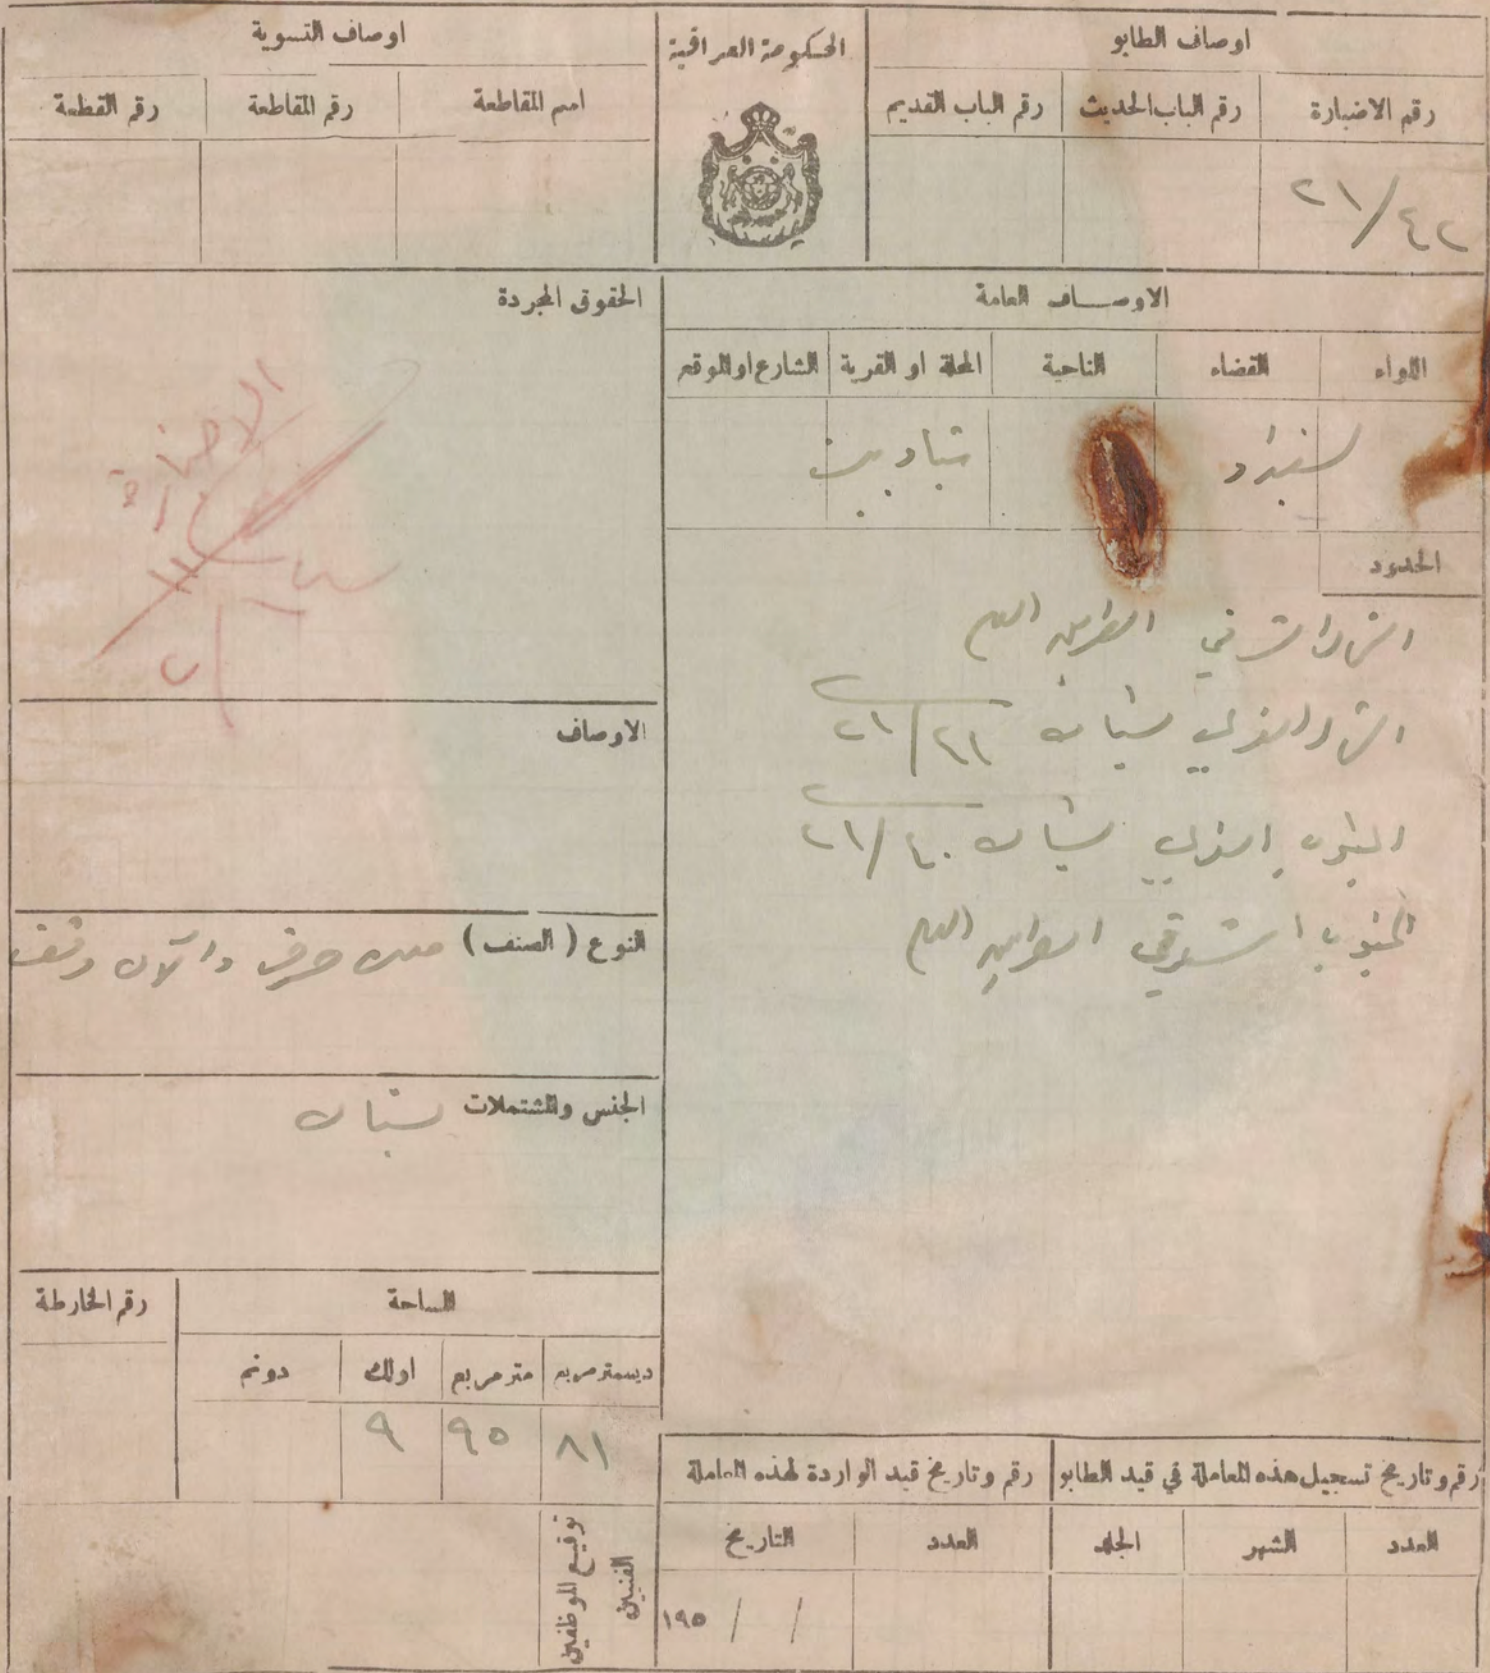 اوصاف الطابو
رقم الاضبارة
رقم الباب الحديث
رقم الباب القديم
٢١/٤٢
الحكومة العراقية
اوصاف التسوية
اسم المقاطعة
رقم المقاطعة
رقم القطعة
الاوصاف العامة
اللواء
القضاء
الناحية
المحلة او القرية
الشارع او الموقع
بغداد
الحدود
الطريق العام
بستان ٢١/٤١
بستان ٢١/٤٠
الجنوب الشرقي الطريق العام
الحقوق المجردة
الاضبارة
الاوصاف
النوع (الصنف) ملك صرف والآن وقف
الجنس والمشتملات بستان
المساحة
رقم الخارطة
ديسمتر مربع
متر مربع
اولك
دونم
٨١
٩٥
٩
رقم وتاريخ تسجيل هذه المعاملة في قيد الطابو
رقم وتاريخ قيد الواردة لهذه المعاملة
العدد
الشهر
الجلد
العدد
التاريخ
/ / ١٩٥
توقيع الموظفين
الفنيين